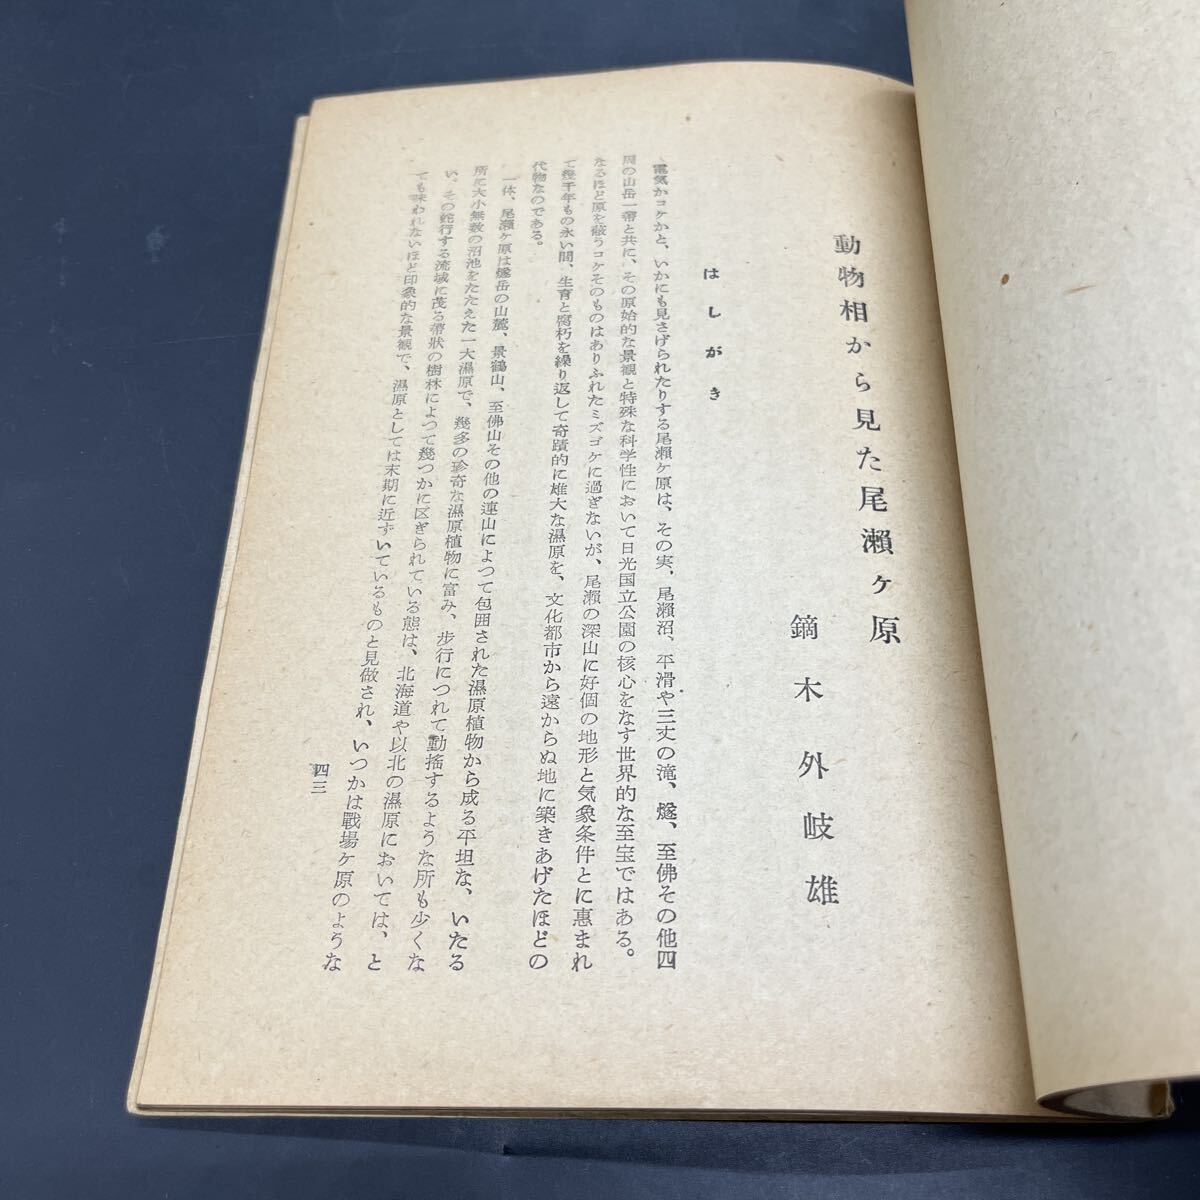 動物相から見た尾瀬ヶ原
鏑木外岐雄
はしがき
電気かコケかと、いかにも見さげられたりする尾瀬ヶ原は、その実、尾瀬沼、平滑や三丈の滝、燧、至佛その他四
周の山岳一帯と共に、その原始的な景観と特殊な科学性において日光国立公園の核心をなす世界的な至宝ではある。
なるほど原を蔽うコケそのものはありふれたミズゴケに過ぎないが、尾瀬の深山に好個の地形と気象条件とに恵まれ
て幾千年もの永い間、生育と腐朽を繰り返して奇蹟的に雄大な濕原を、文化都市から遠からぬ地に築きあげたほどの
代物なのである。
一体、尾瀬ヶ原は燧岳の山麓、景鶴山、至佛山その他の連山によつて包囲された濕原植物から成る平坦な、いたる
所に大小無数の沼池をたたえた一大濕原で、幾多の珍奇な濕原植物に富み、歩行につれて動搖するような所も少くな
い、その蛇行する流域に茂る帶狀の樹林によつて幾つかに区ぎられている態は、北海道や以北の濕原においては、と
ても味われないほど印象的な景観で、濕原としては末期に近ずいているものと見做され、いつかは戰場ヶ原のような
四三